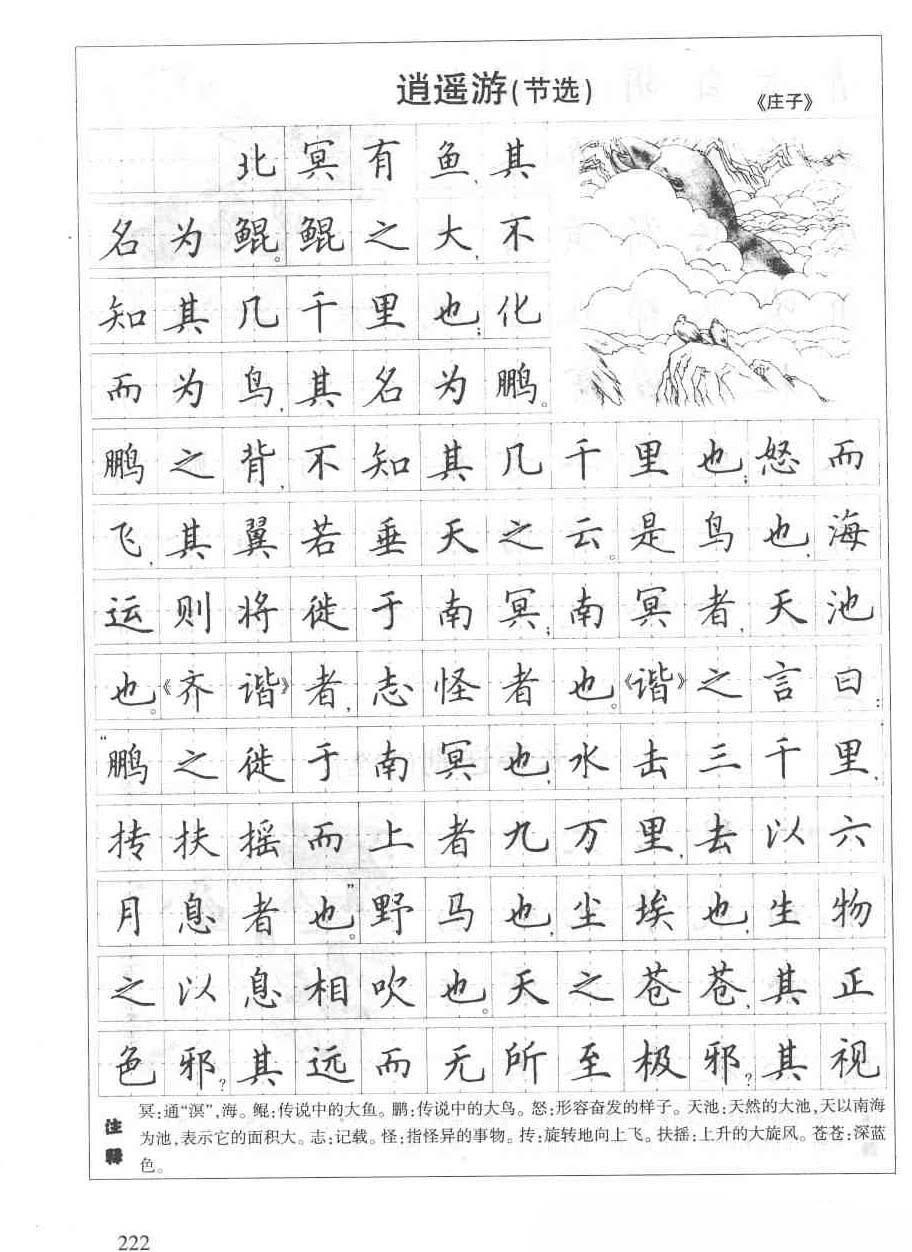 逍遥游(节选)
《庄子》
北冥有鱼,其
名为鲲。鲲之大,不
知其几千里也;化
而为鸟,其名为鹏。
鹏之背,不知其几千里也;怒而
飞,其翼若垂天之云。是鸟也,海
运则将徙于南冥;南冥者,天池
也。《齐谐》者,志怪者也。《谐》之言曰:
“鹏之徙于南冥也,水击三千里,
抟扶摇而上者九万里,去以六
月息者也”。野马也,尘埃也,生物
之以息相吹也。天之苍苍,其正
色邪?其远而无所至极邪?其视
注释
冥:通“溟”,海。鲲:传说中的大鱼。鹏:传说中的大鸟。怒:形容奋发的样子。天池:天然的大池,天以南海
为池,表示它的面积大。志:记载。怪:指怪异的事物。抟:旋转地向上飞。扶摇:上升的大旋风。苍苍:深蓝
色。
222